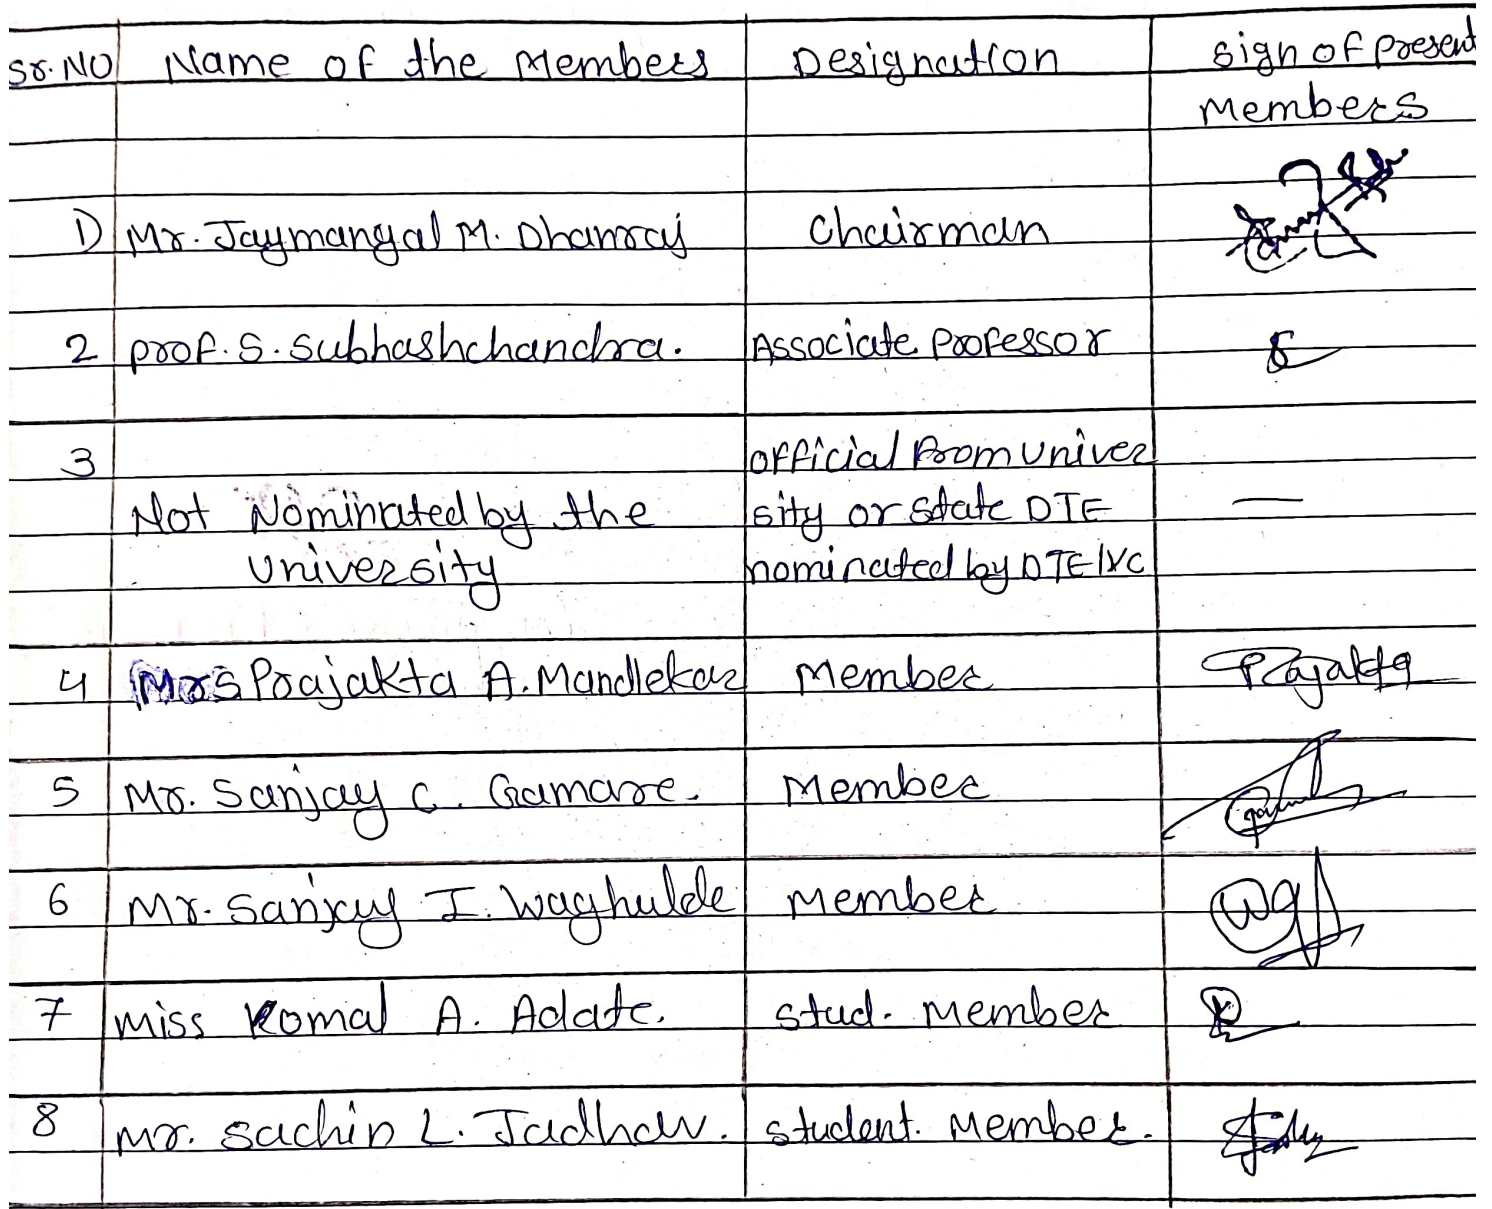 Sr.NO Name of the Members Designation sign of present
Members
1) Mr. Jaymangal M. Dhanraj Chairman
2 prof. S. Subhashchandra. Associate Professor
3 official from univer
Not Nominated by the sity or state DTE —
University nominated by DTE/VC
4 Mrs Prajakta A. Mandlekar Member Prajakta
5 Mr. Sanjay C. Gamare. Member
6 Mr. Sanjay I. Waghulde Member
7 Miss Komal A. Adate. stud. Member
8 Mr. Sachin L. Jadhav. student. Member.